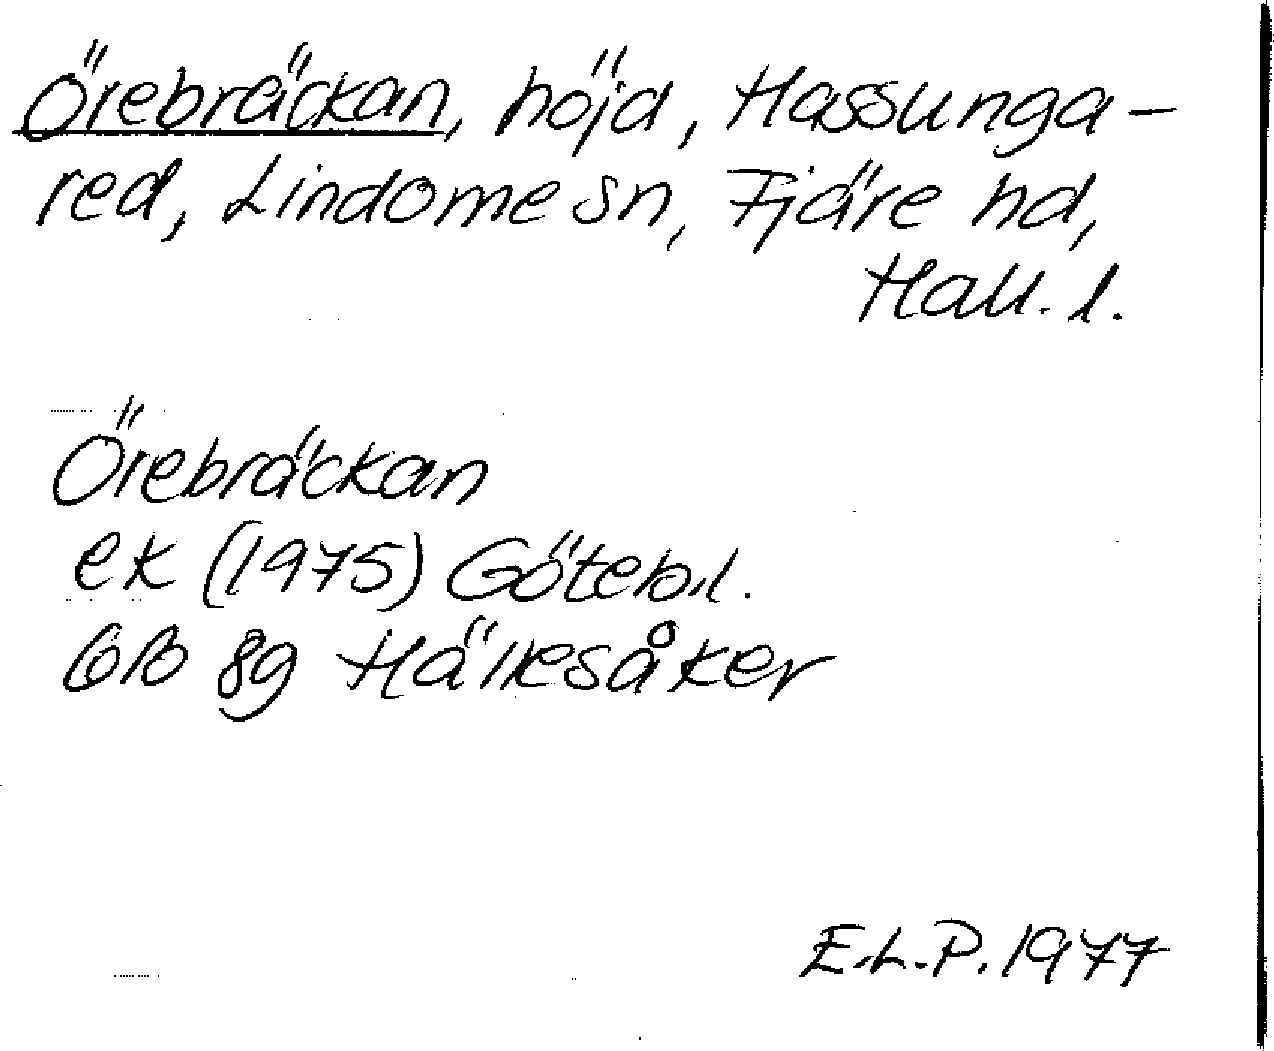 Örebräckan, höjd, Hassunga-
red, Lindome sn, Fjäre hd,
Hall. l.
Örebräckan
ek (1975) Göteb.l.
6B 8g Hällesåker
E.L.P. 1977